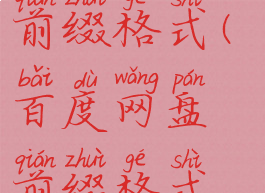 qián zhuì gé shì
前缀格式(
bǎi dù wǎng pán
百度网盘
qián zhuì gé shì
前缀格式